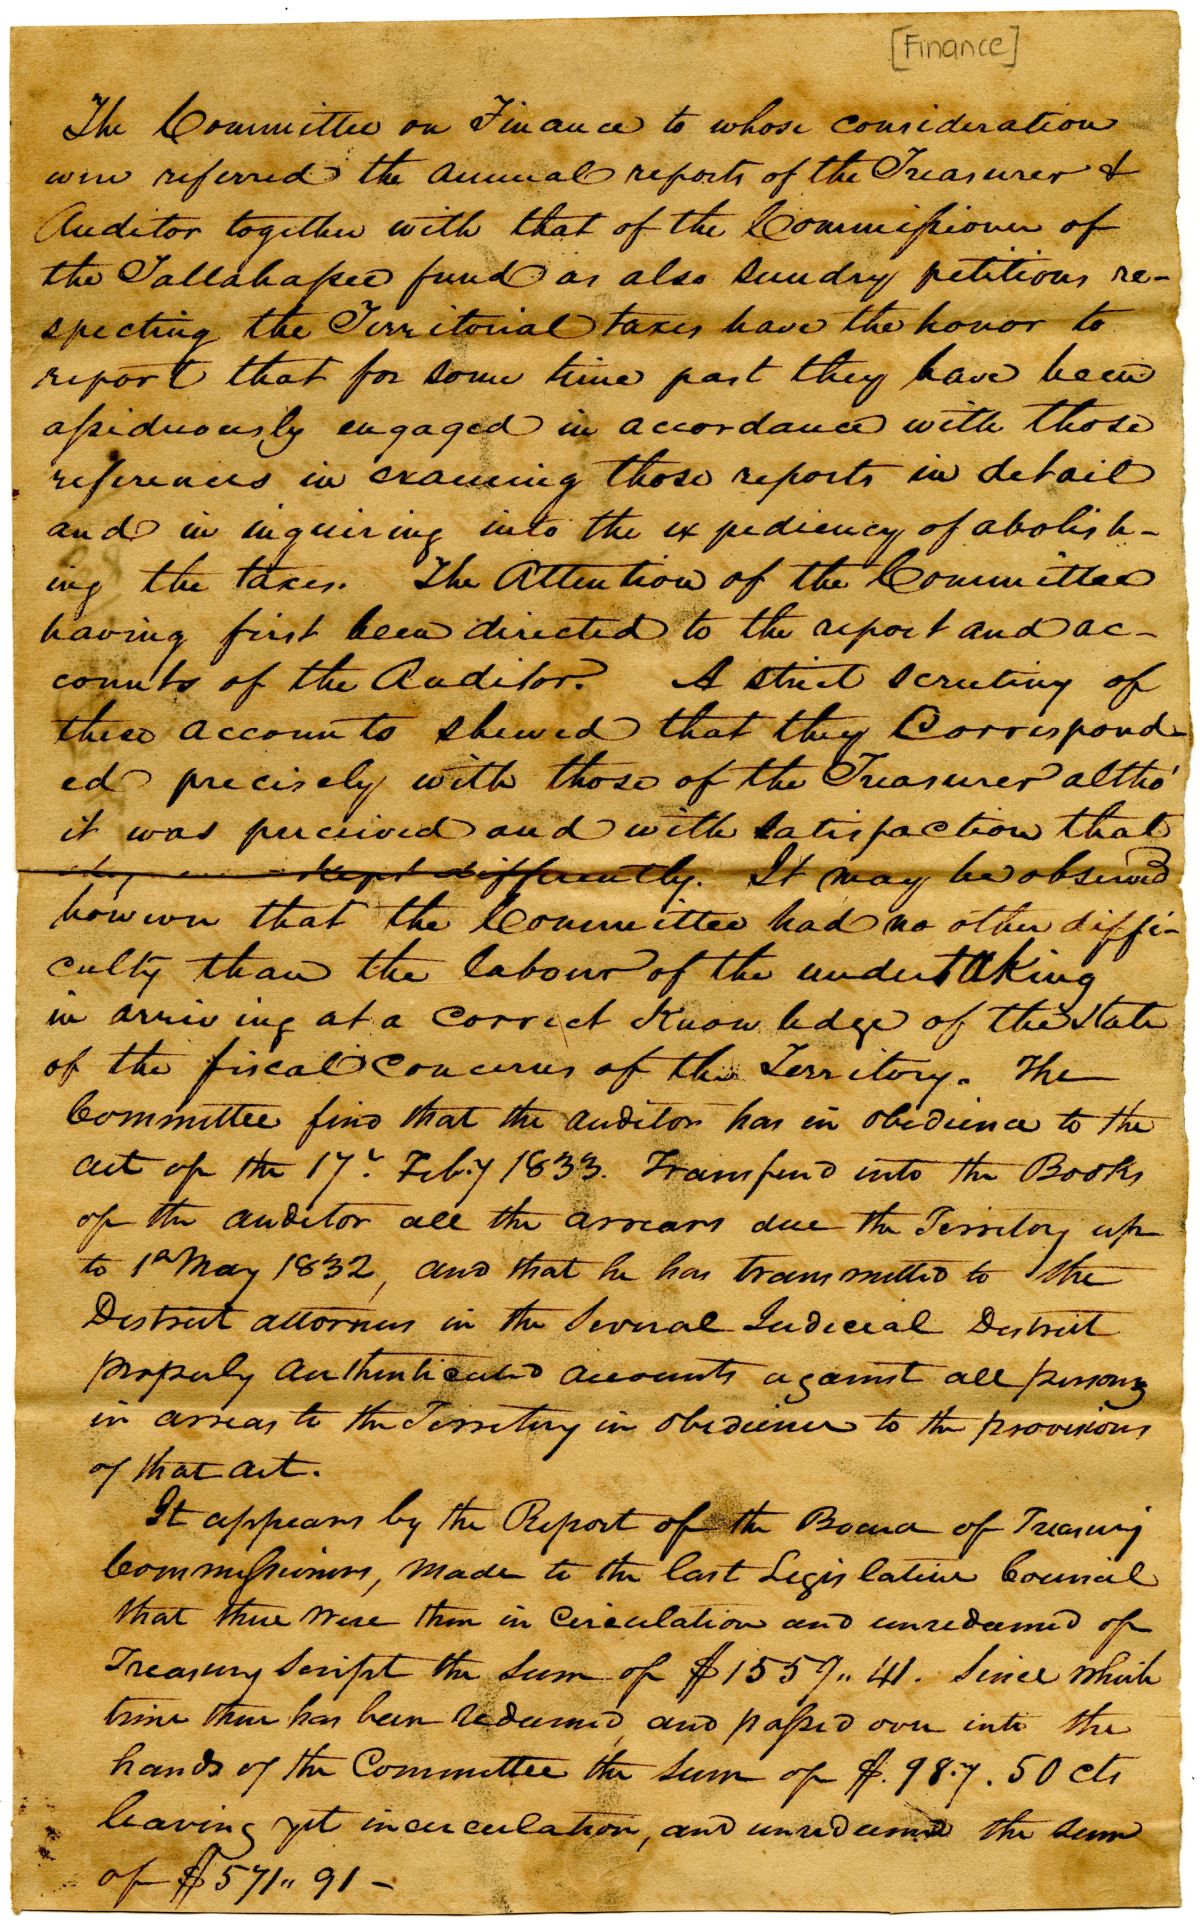 [Finance]
The Committee on Finance to whose consideration
were referred the annual reports of the Treasurer &
Auditor together with that of the Commissioner of
the Tallahassee fund as also sundry petitions re-
specting the Territorial taxes have the honor to
report that for some time past they have been
assiduously engaged in accordance with those
references in examing those reports in detail
and in inquiring into the expediency of abolish-
ing the taxes. The Attention of the Committee
having first been directed to the report and ac-
counts of the Auditor. A strict scrutiny of
these accounts shewed that they Correspond-
ed precisely with those of the Treasurer altho'
it was perceived and with satisfaction that
kept differently. It may be observed
however that the Committee had no other diffi-
culty than the labour of the undertaking
in arriving at a correct Knowledge of the State
of the fiscal concerns of the Territory. The
Committee find that the auditor has in obedience to the
act of the 17th Feby 1833. Transferd into the Books
of the auditor all the arrears due the Territory up
to 1st May 1832, and that he has transmitted to the
District attorneys in the Several Judicial District
properly authenticated accounts against all persons
in arrears to the Territory in obedience to the provisions
of that act.
It appears by the Report of the Board of Treasury
Commissioners, made to the last Legislative Council
that there were then in circulation and unredeemed of
Treasury Script the sum of $1559.. 41. Since which
time there has been redeemed, and passed over into the
hands of the Committee the sum of $.987.50 cts
leaving yet in circulation, and unredeemed the sum
of $571.. 91 -